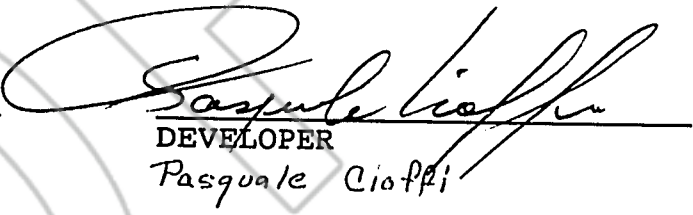 Pasquale Cioffi
DEVELOPER
Pasquale Cioffi